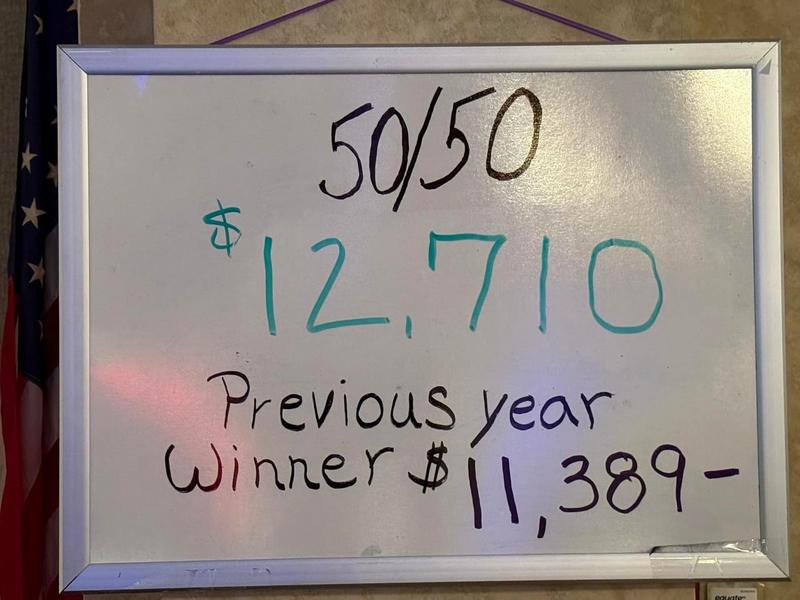 50/50
$12,710
Previous year
Winner $11,389-
equate